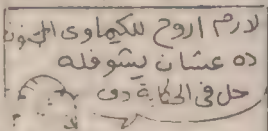 لازم اروح للكيماوى المجنون
ده عشان يشوفله
حل فى الحكاية دى